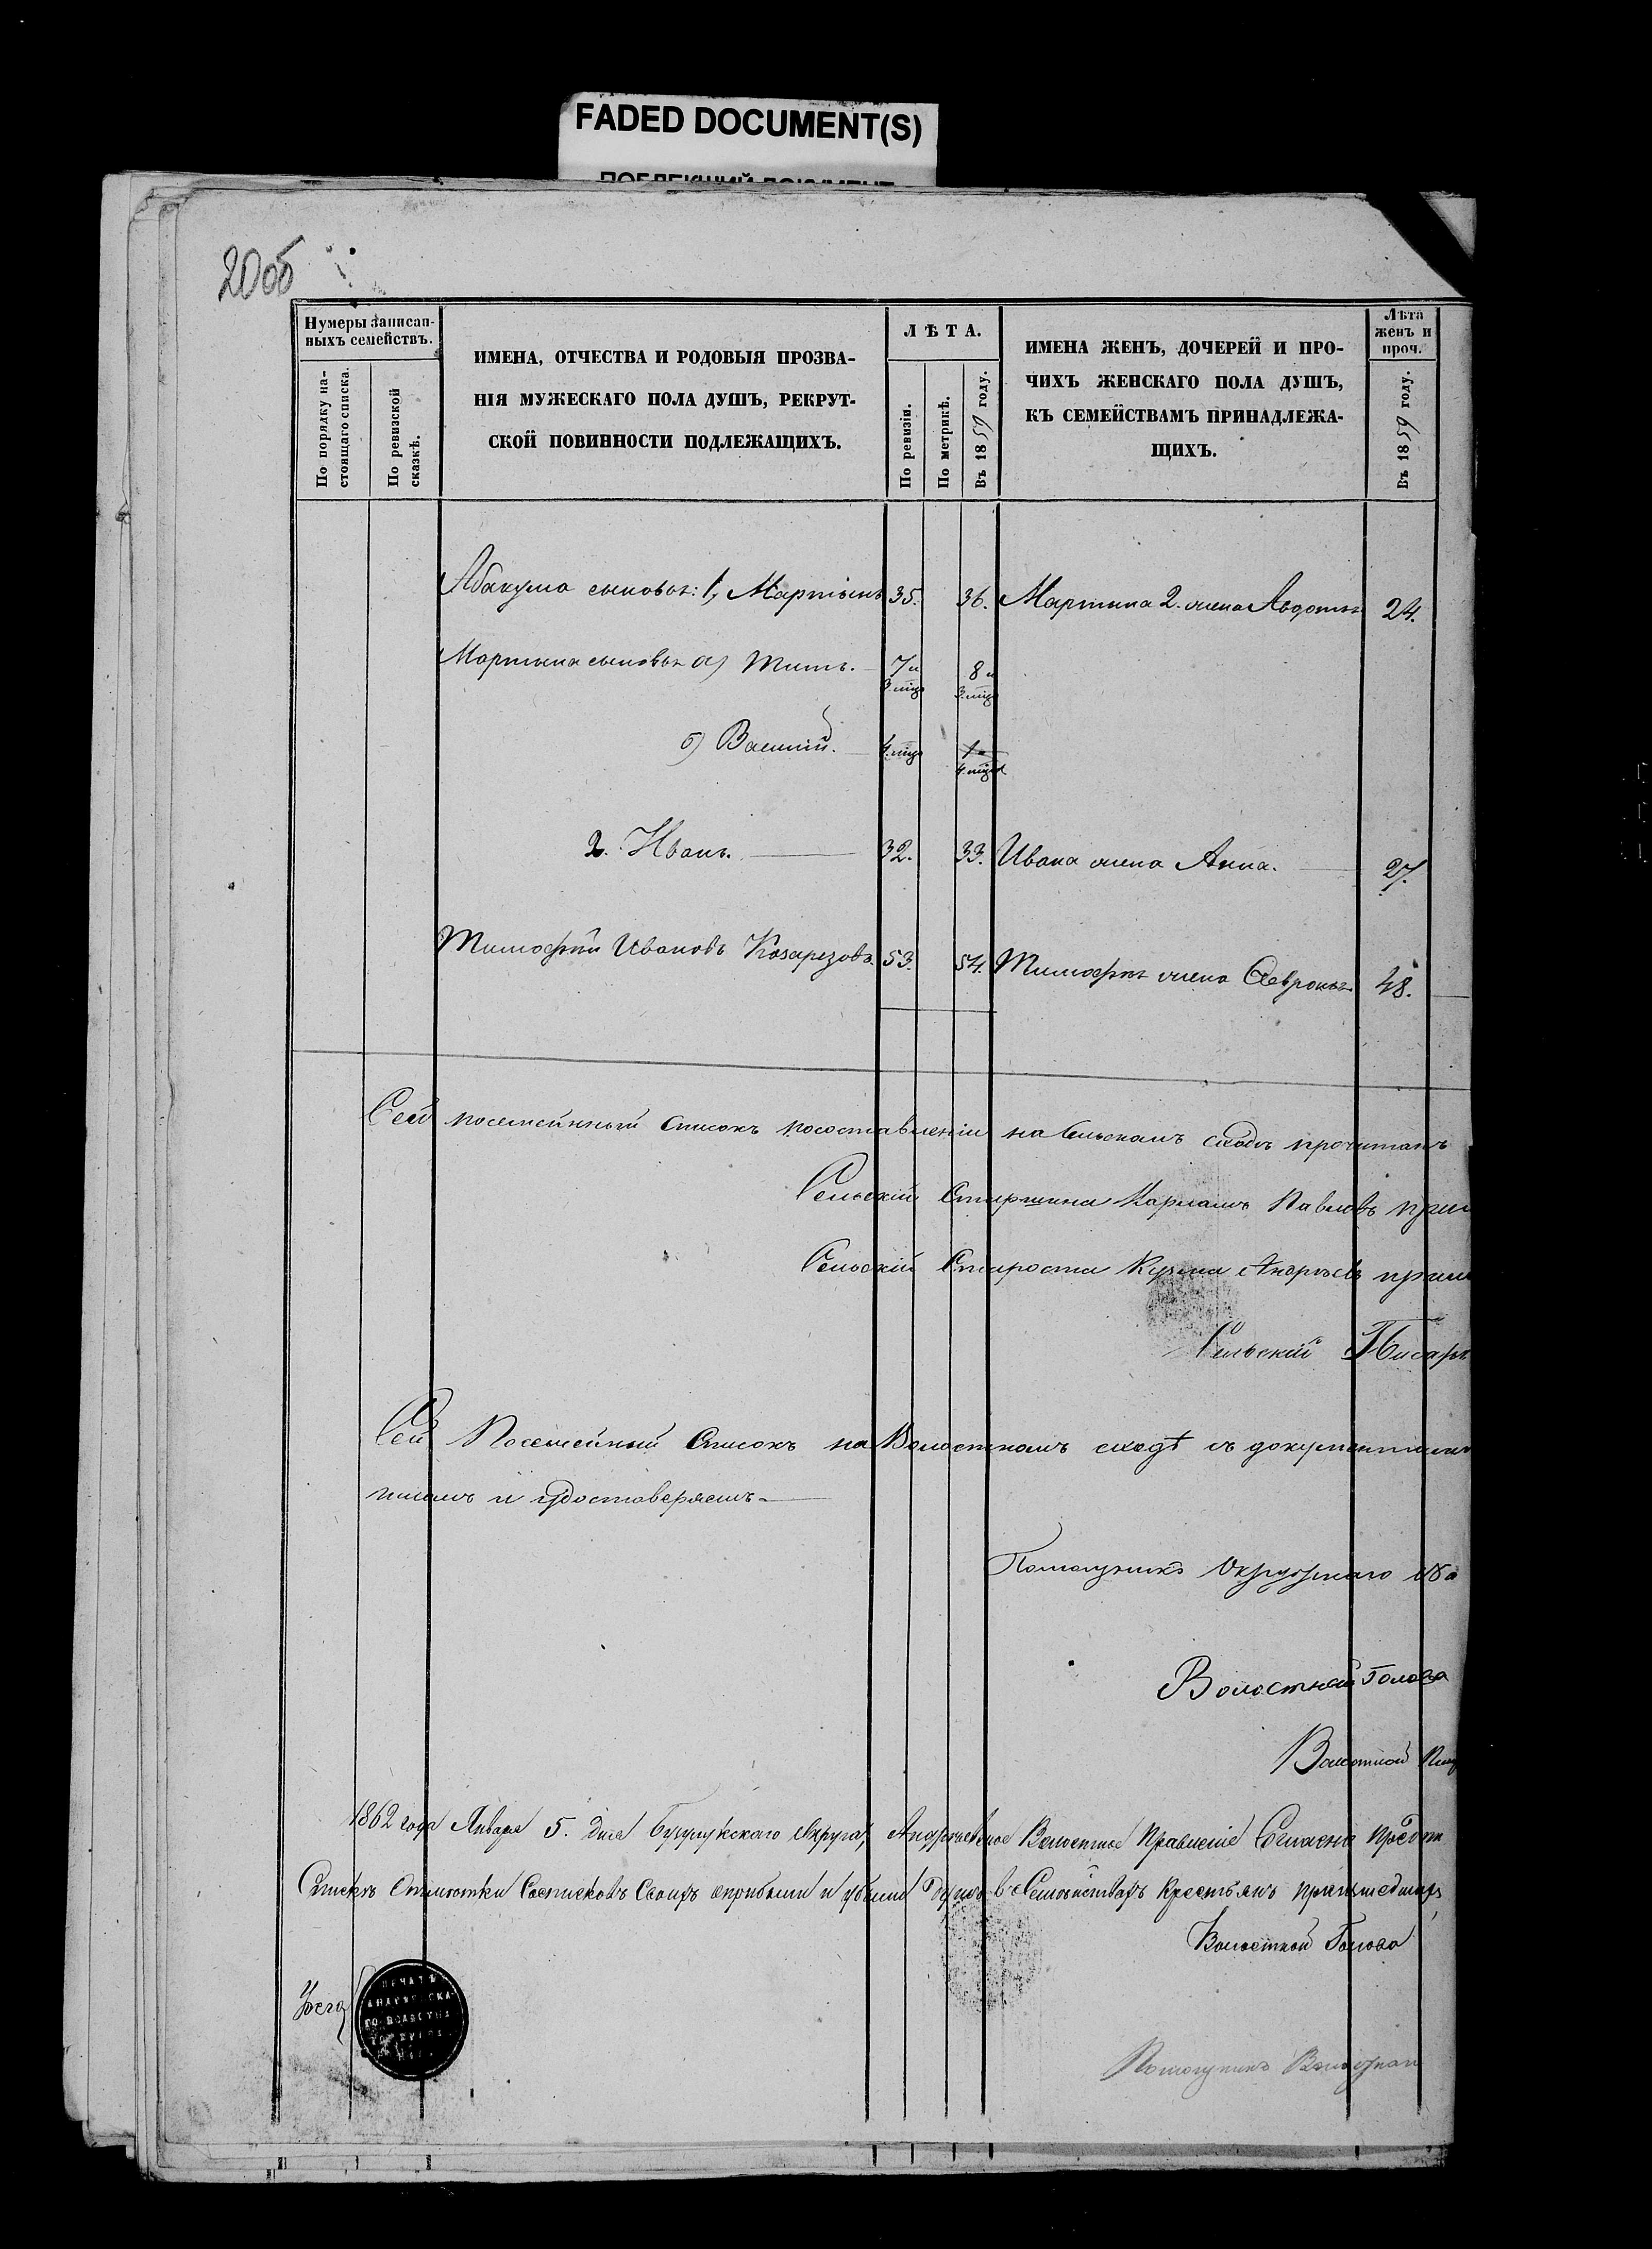 FADED DOCUMENT(S)
ПОБЛЕКШИЙ ДОКУМЕНТ
20об
Нумеры записан-
ныхъ семействъ.
По порядку на-
стоящаго списка.
По ревизской
сказкѣ.
ИМЕНА, ОТЧЕСТВА И РОДОВЫЯ ПРОЗВА-
НІЯ МУЖЕСКАГО ПОЛА ДУШЪ, РЕКРУТ-
СКОЙ ПОВИННОСТИ ПОДЛЕЖАЩИХЪ.
ЛѢТА.
По ревизіи.
По метрикѣ.
Въ 1859 году.
ИМЕНА ЖЕНЪ, ДОЧЕРЕЙ И ПРО-
ЧИХЪ ЖЕНСКАГО ПОЛА ДУШЪ,
КЪ СЕМЕЙСТВАМЪ ПРИНАДЛЕЖА-
ЩИХЪ.
Лѣта
женъ и
проч.
Въ 1859 году.
Абакума сыновья: 1, Мартынъ 35. 36. Мартына 2. жена Авдотья 24.
Мартына сыновья а) Титъ. 7 и 3. мѣс 8 и 3. мѣс
б) Василій. 4. мѣс 1 и 4. мѣс
2. Иванъ. 32. 33. Ивана жена Анна. 27.
Тимофѣй Ивановъ Козарезовъ. 53. 54. Тимофѣя жена Февронья 48.
Сей посемейный списокъ по составленіи на Сельскомъ сходѣ прочитанъ
Сельскій Старшина Павловъ
Сельскій Староста Кузма Андреевъ
Сельскій Писарь
Сей Посемейный Списокъ на Волостномъ сходѣ съ документами
и удостоверяемъ.
Помощникъ Окружнаго
Волостной Голова
Волостной
1862 года Января 5. дня Бузулукскаго Округа, Андреевское Волостное Правленіе Согласно
Списку и убыли въ Семействахъ Крестьянъ
Волостной Голова
ПЕЧАТЬ
АНДРЕЕВСКА-
ГО ВОЛОСТНА-
Помощникъ